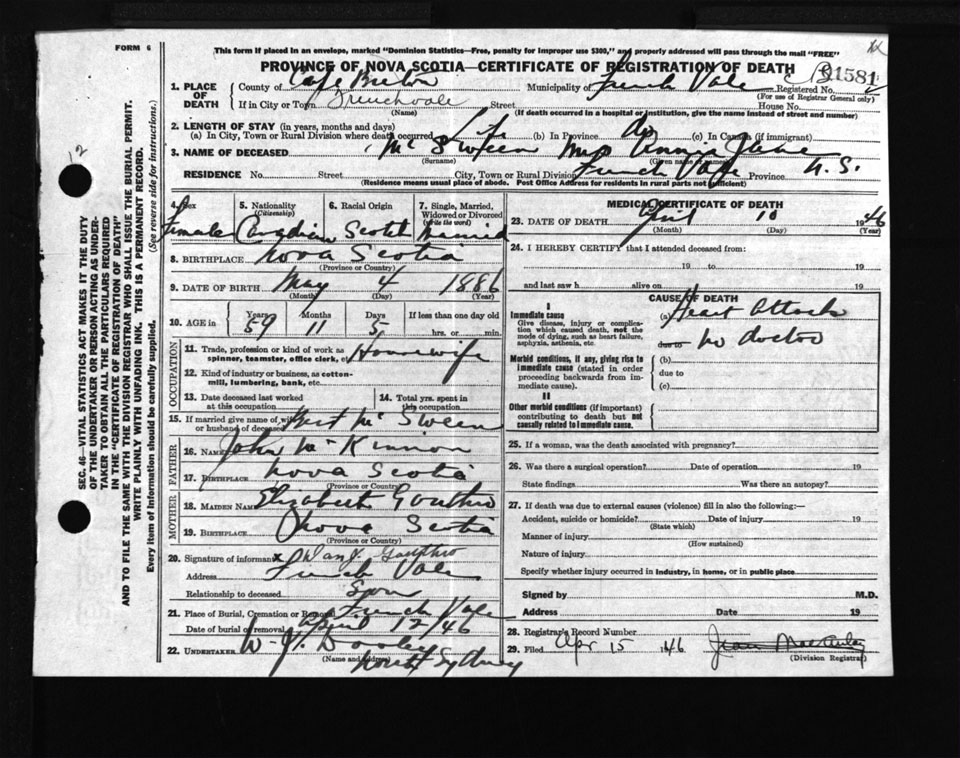 FORM 6
This form if placed in an envelope, marked "Dominion Statistics—Free, penalty for improper use $300," and properly addressed will pass through the mail "FREE"
PROVINCE OF NOVA SCOTIA—CERTIFICATE OF REGISTRATION OF DEATH
1581
1. PLACE OF DEATH
County of Cape Breton Municipality of French Vale Registered No.
(For use of Registrar General only)
If in City or Town Frenchvale Street House No.
(Name) (If death occurred in a hospital or institution, give the name instead of street and number)
2. LENGTH OF STAY (in years, months and days)
(a) In City, Town or Rural Division where death occurred Life (b) In Province do (c) In Canada (if immigrant)
3. NAME OF DECEASED Mc Sween Mrs Annie Jane
(Surname) (Given name or names)
RESIDENCE No. Street City, Town or Rural Division French Vale Province N.S.
(Residence means usual place of abode. Post Office Address for residents in rural parts not sufficient)
4. Sex Female
5. Nationality (Citizenship) Canadian
6. Racial Origin Scotch
7. Single, Married, Widowed or Divorced (write the word) Married
8. BIRTHPLACE Nova Scotia
(Province or Country)
9. DATE OF BIRTH May 4 1886
(Month) (Day) (Year)
10. AGE in Years 59 Months 11 Days 5 If less than one day old hrs. or min.
OCCUPATION
11. Trade, profession or kind of work as spinner, teamster, office clerk, etc. Housewife
12. Kind of industry or business, as cotton-mill, lumbering, bank, etc.
13. Date deceased last worked at this occupation
14. Total yrs. spent in this occupation
15. If married give name of wife or husband of deceased Bert Mc Sween
FATHER
16. NAME John Mc Kinnon
17. BIRTHPLACE Nova Scotia
(Province or Country)
MOTHER
18. MAIDEN NAME Elizabeth Gouthro
19. BIRTHPLACE Nova Scotia
(Province or Country)
20. Signature of informant x Dan J. Gouthro
Address French Vale
Relationship to deceased Son
21. Place of Burial, Cremation or Removal French Vale
Date of burial or removal April 12/46
22. UNDERTAKER W. J. Dooley North Sydney
(Name and address)
MEDICAL CERTIFICATE OF DEATH
23. DATE OF DEATH April 10 1946
(Month) (Day) (Year)
24. I HEREBY CERTIFY that I attended deceased from:
19 to 19
and last saw h alive on 19
CAUSE OF DEATH
I
Immediate cause
Give disease, injury or complication which caused death, not the mode of dying, such as heart failure, asphyxia, asthenia, etc.
(a) Heart Attack
due to no doctor
Morbid conditions, if any, giving rise to immediate cause (stated in order proceeding backwards from immediate cause).
(b)
due to
(c)
II
Other morbid conditions (if important) contributing to death but not causally related to immediate cause.
25. If a woman, was the death associated with pregnancy?
26. Was there a surgical operation? Date of operation 19
State findings Was there an autopsy?
27. If death was due to external causes (violence) fill in also the following:—
Accident, suicide or homicide? Date of injury 19
(State which)
Manner of injury
(How sustained)
Nature of injury
Specify whether injury occurred in industry, in home, or in public place
Signed by M.D.
Address Date 19
28. Registrar's Record Number
29. Filed Apr 15 1946 Jean MacAuley
(Division Registrar)
12
SEC. 46—VITAL STATISTICS ACT MAKES IT THE DUTY
OF THE UNDERTAKER OR PERSON ACTING AS UNDER-
TAKER TO OBTAIN ALL THE PARTICULARS REQUIRED
IN THE "CERTIFICATE OF REGISTRATION OF DEATH"
AND TO FILE THE SAME WITH THE DIVISION REGISTRAR WHO SHALL ISSUE THE BURIAL PERMIT.
WRITE PLAINLY WITH UNFADING INK. THIS IS A PERMANENT RECORD.
Every item of Information should be carefully supplied. (See reverse side for instructions.)